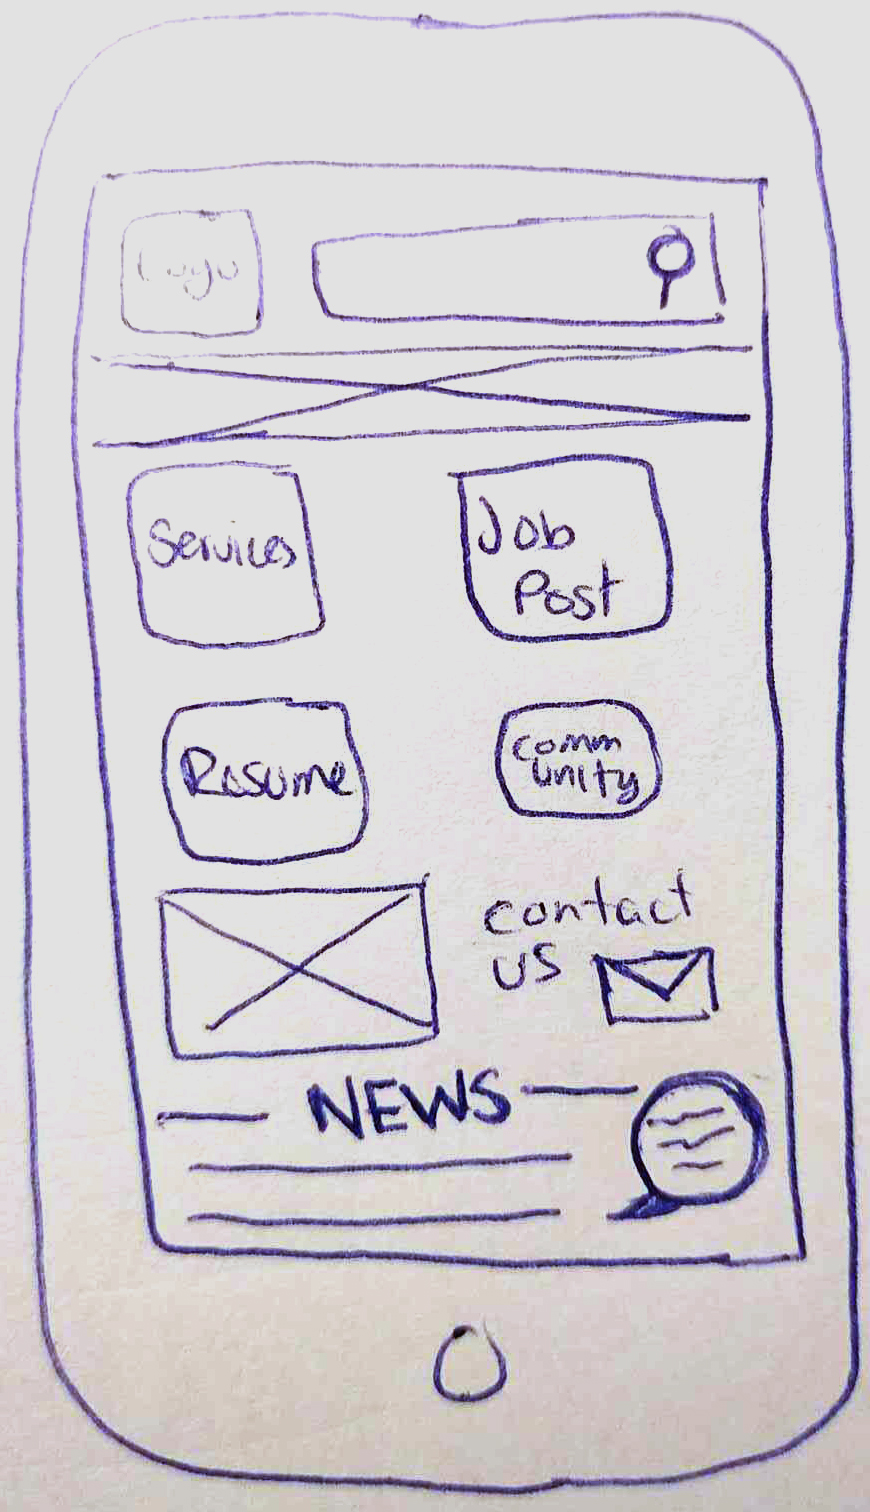 Logo
Services
Job
Post
Resume
comm
unity
contact
us
NEWS